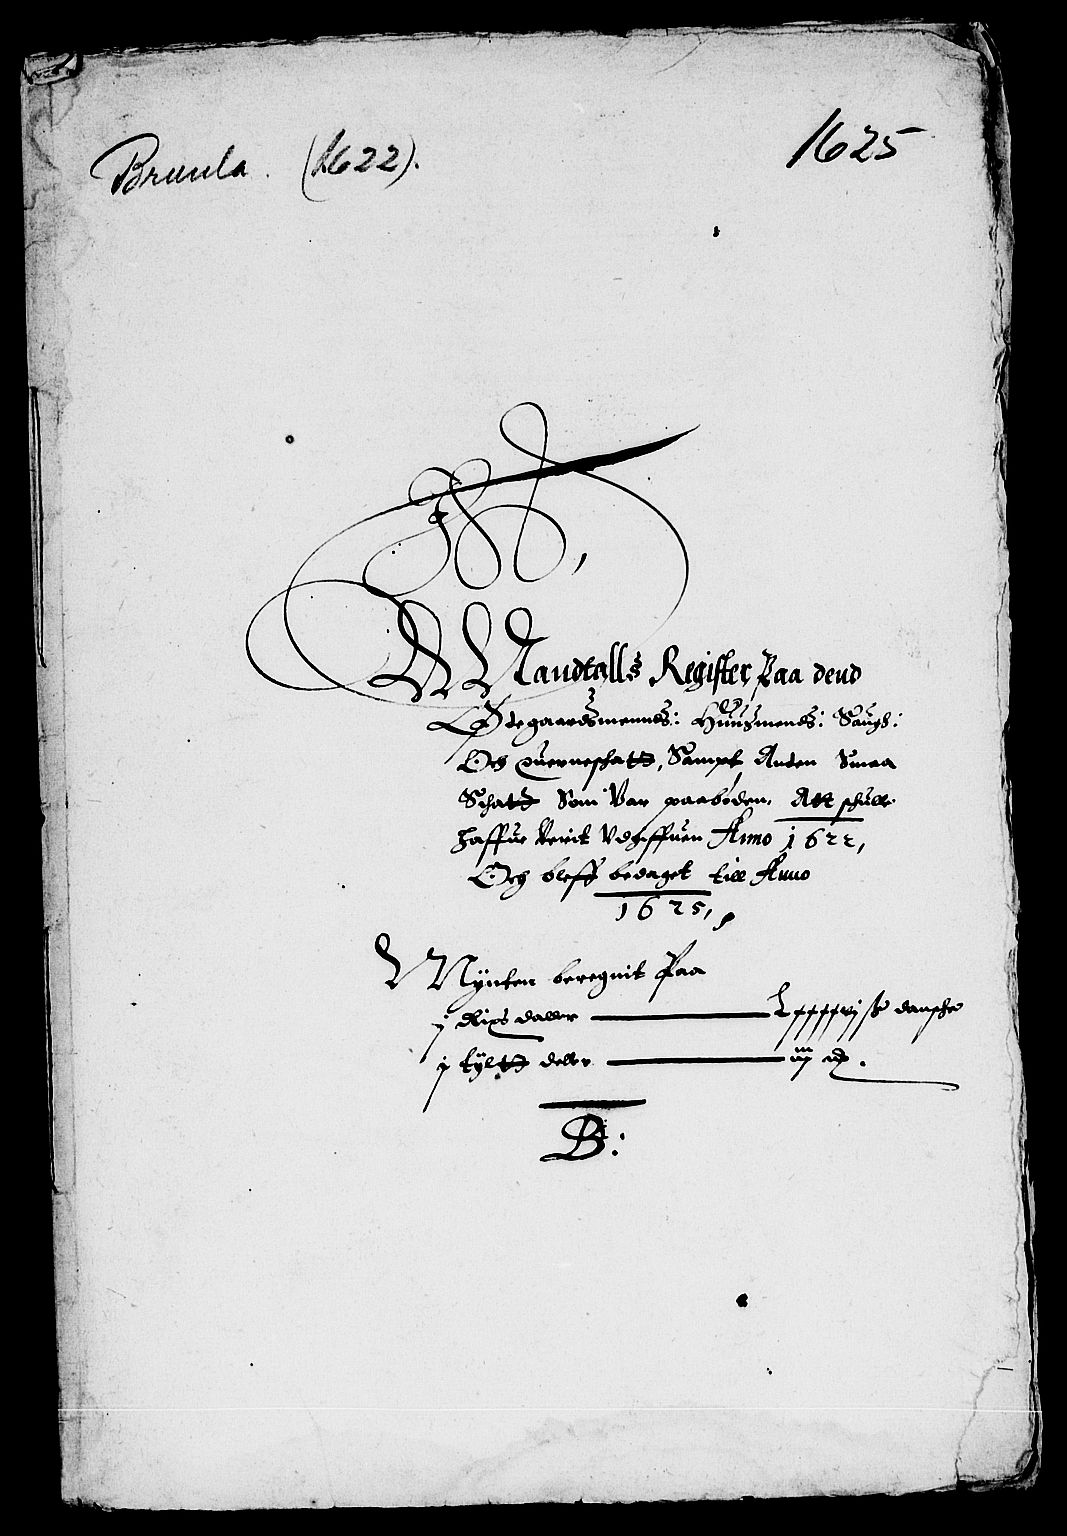 Brunla. (1622). 1625
Ett,
Mandtalls Register Paa dend
Ødegaardsmennds: Huusmends: Saugh:
Och querneschatt, Sampt Anden Smaa
Schatt Som Var paabøden. Att schulle
haffue Verit Vdgiffuen Anno 1622,
Och bleff bedaget till Anno
1625,
Mÿnten beregnit Paa
j Rix daller Lxxxxvj ß dansche
j tÿltt deller iiij
B: